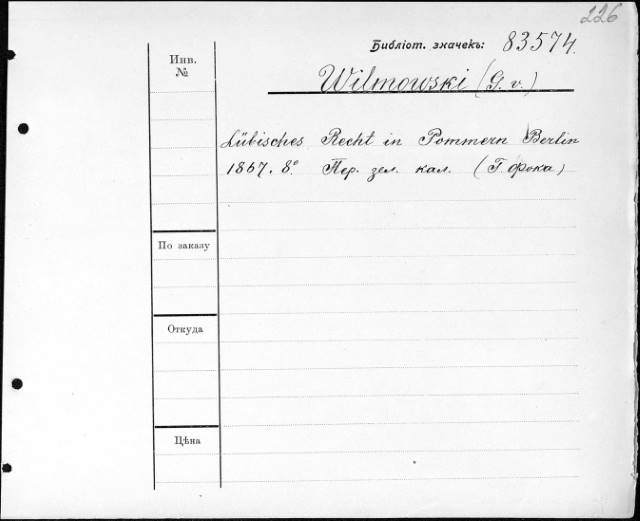 226
Библіот. значекъ: 83574.
Инв.
№
Wilmowski (G. v.)
Lübisches Recht in Pommern Berlin
1867. 8º. Пер. зел. кал. (Г. Фока)
По заказу
Откуда
Цѣна